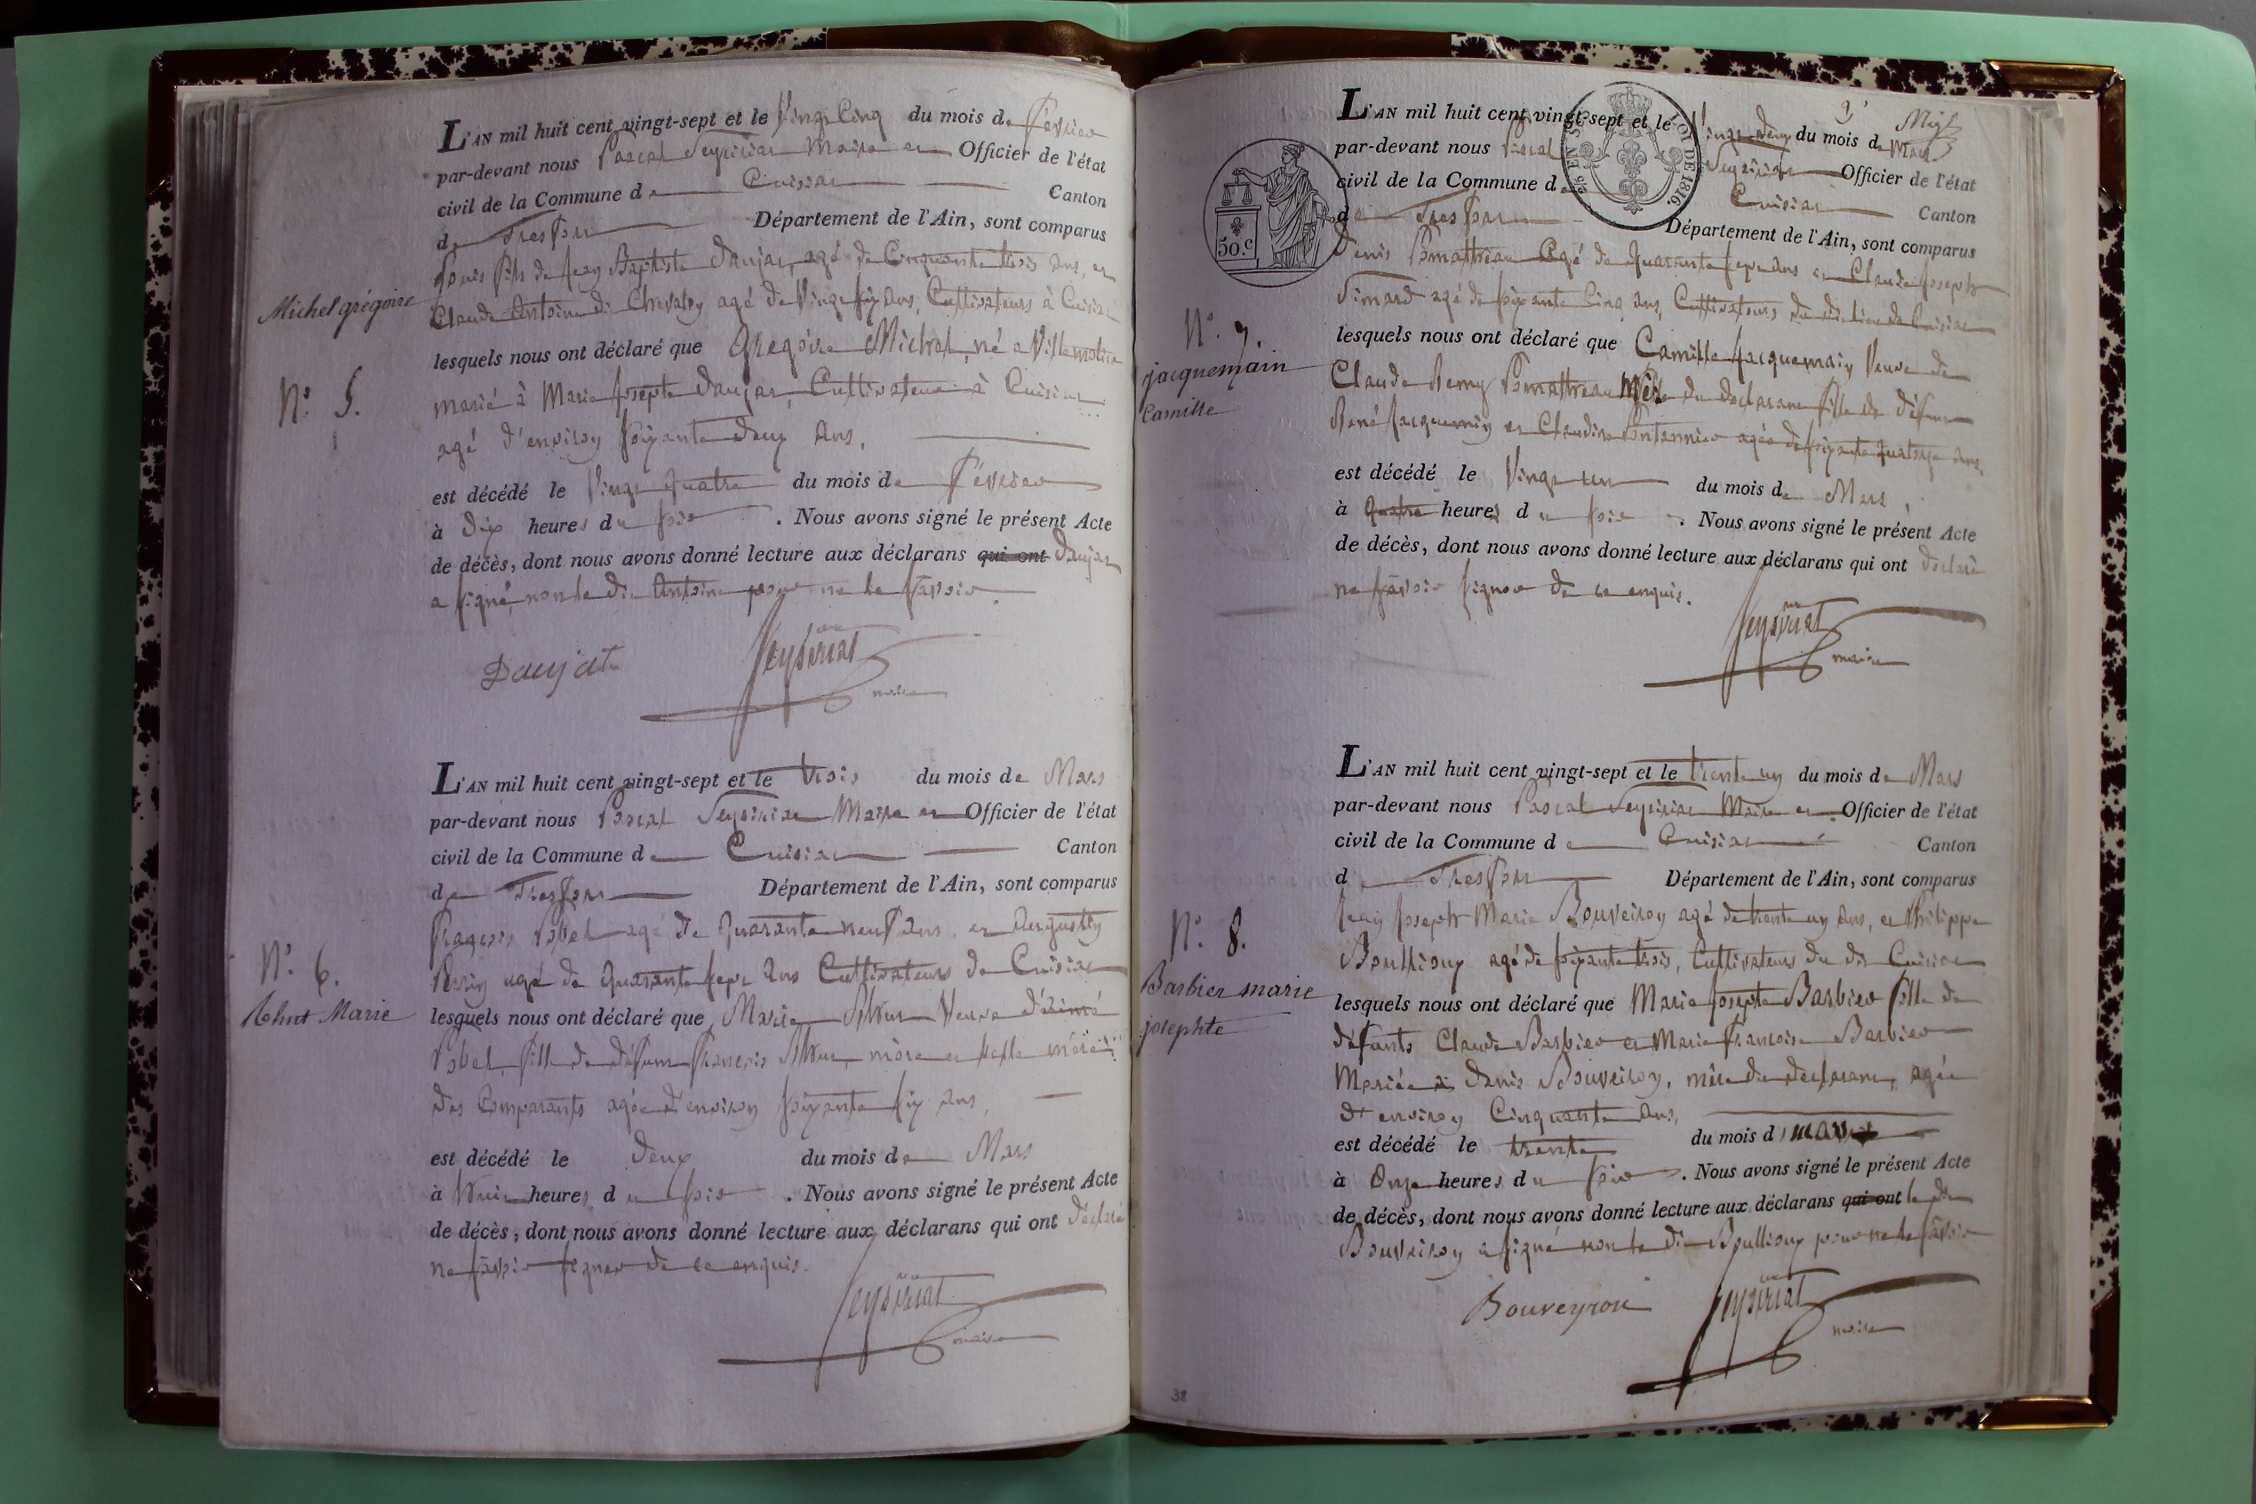 Michel grégoire
N.° 5.
L'AN mil huit cent vingt-sept et le Vingt Cinq du mois de Février
par-devant nous Pascal Seyssiriat Maire et Officier de l'état
civil de la Commune de Cuisiat Canton
de Treffort Département de l'Ain, sont comparus
Louis fils de Jean Baptiste Daujat, agé de Cinquante trois ans, et
Claude Antoine di Chevalley agé de Vingt six ans, Cultivateurs à Cuisiat
lesquels nous ont déclaré que Grégoire Michel né a Villemotier
marié à Marie Josepte Daujat, Cultivateur à Cuisiat
agé d'environ soixante deux ans,
est décédé le Vingt quatre du mois de Février
à dix heures du soir . Nous avons signé le présent Acte
de décès, dont nous avons donné lecture aux déclarans qui ont Daujat
a signé, non le dit Antoine pour ne le savoir
Daujat Seyssiriat
maire
N.° 6.
Marie
L'AN mil huit cent vingt-sept et le trois du mois de Mars
par-devant nous Pascal Seyssiriat Maire et Officier de l'état
civil de la Commune de Cuisiat Canton
de Treffort Département de l'Ain, sont comparus
François agé de Quarante neuf ans, et Augustin
agé de Quarante sept ans Cultivateurs de Cuisiat
lesquels nous ont déclaré que Marie Veuve
fille de défunt François mère et belle mère
des Comparants agée d'environ soixante six ans,
est décédé le deux du mois de Mars
à huit heures du soir . Nous avons signé le présent Acte
de décès, dont nous avons donné lecture aux déclarans qui ont déclaré
ne savoir signer de ce enquis.
Seyssiriat
maire
N.° 7.
jacquemain
Camille
50.c
EN SUS
LOI DE 1816.
L'AN mil huit cent vingt-sept et le Vingt deux du mois de Mars
par-devant nous Pascal Seyssiriat Officier de l'état
civil de la Commune de Cuisiat Canton
de Treffort Département de l'Ain, sont comparus
Denis Pomathieu agé de Quarante sept ans et Claude Joseph
Simard agé de soixante Cinq ans, Cultivateurs du dit lieu de Cuisiat
lesquels nous ont déclaré que Camille Jacquemain Veuve de
Claude Remy Pomathieu Mère du déclarant fille de défunt
René Jacquemin et Claudine agée de soixante Quatorze ans,
est décédé le Vingt un du mois de Mars
à Quatre heures du soir . Nous avons signé le présent Acte
de décès, dont nous avons donné lecture aux déclarans qui ont déclaré
ne savoir signer de ce enquis.
Seyssiriat
maire
N.° 8.
Barbier marie
josephte
L'AN mil huit cent vingt-sept et le trente un du mois de Mars
par-devant nous Pascal Seyssiriat Maire et Officier de l'état
civil de la Commune de Cuisiat Canton
de Treffort Département de l'Ain, sont comparus
Jean Joseph Marie Bouveiron agé de trente un ans, et Philippe
Boullioux agé de soixante trois, Cultivateurs du dit Cuisiat
lesquels nous ont déclaré que Marie Josepte Barbier fille de
défunts Claude Barbier et Marie Françoise Barbier
Mariée à Denis Bouveiron, mère du déclarant, agée
d'environ Cinquante ans,
est décédé le trente du mois d mars
à Onze heures du soir . Nous avons signé le présent Acte
de décès, dont nous avons donné lecture aux déclarans qui ont le dit
Bouveiron a signé non le dit Boullioux pour ne le savoir
Bouveyron Seyssiriat
maire
38